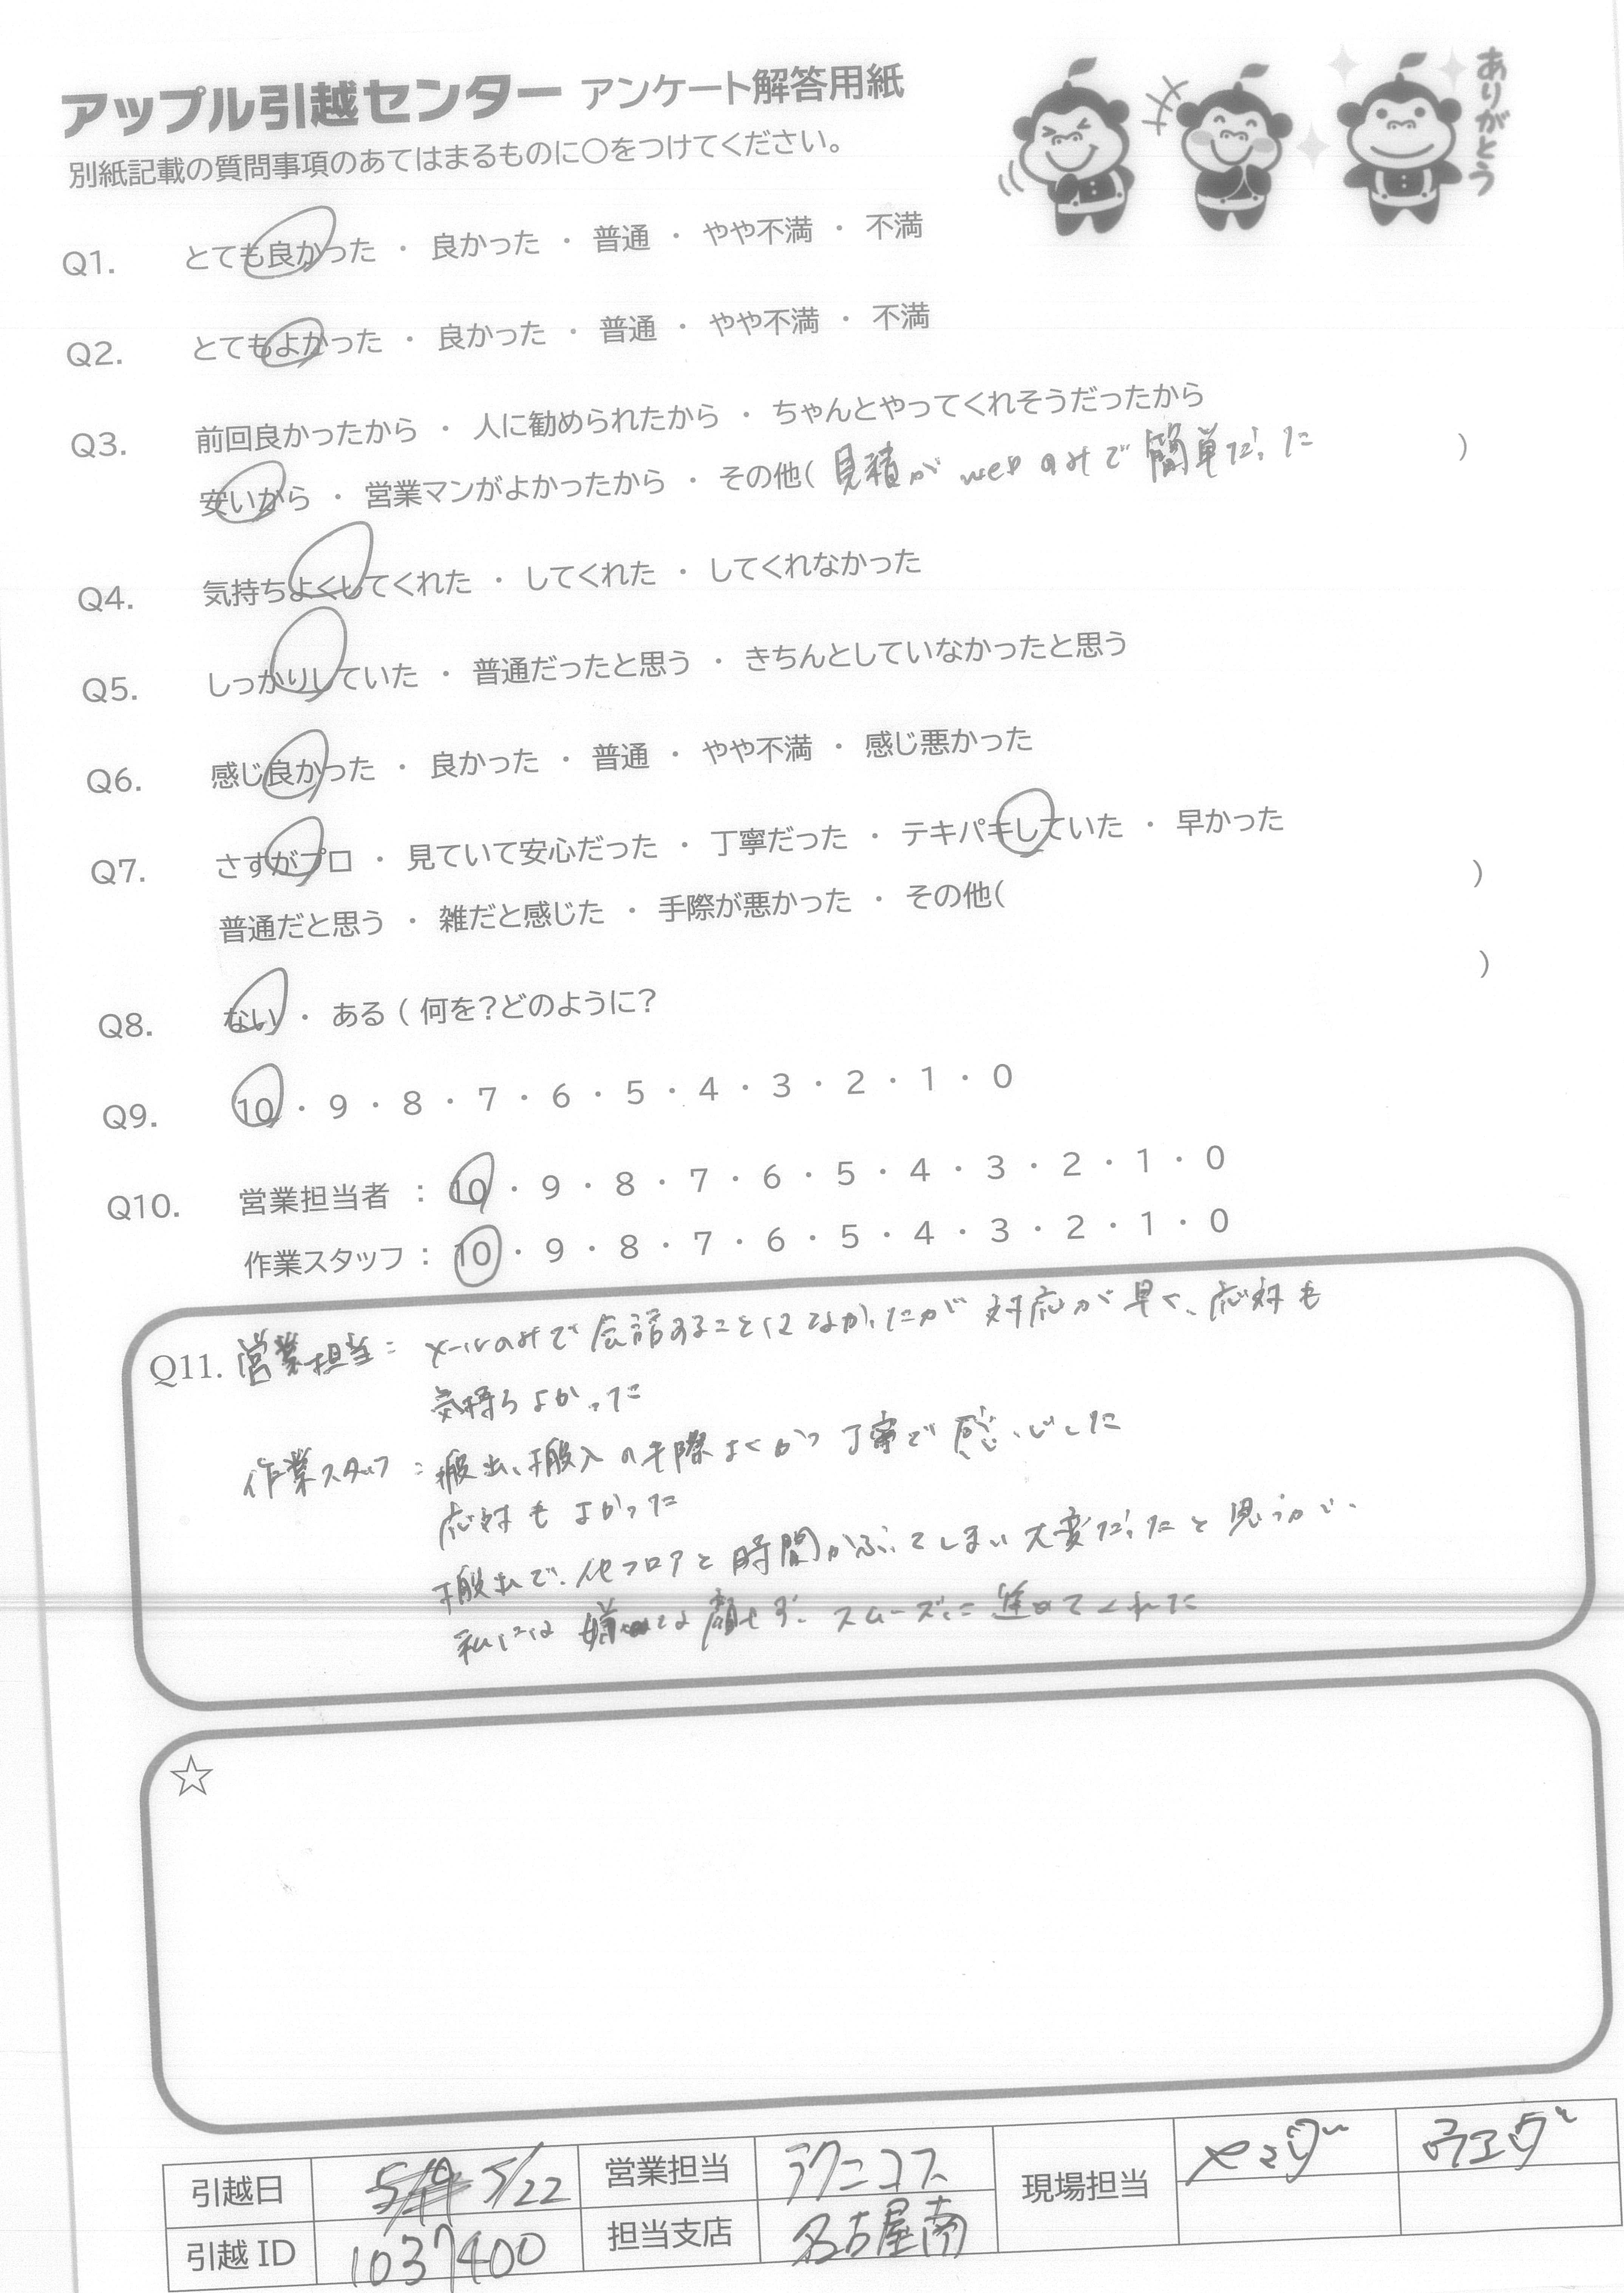 アップル引越センター アンケート解答用紙
別紙記載の質問事項のあてはまるものに〇をつけてください。
ありがとう
Q1. とても良かった ・ 良かった ・ 普通 ・ やや不満 ・ 不満
Q2. とてもよかった ・ 良かった ・ 普通 ・ やや不満 ・ 不満
Q3. 前回良かったから ・ 人に勧められたから ・ ちゃんとやってくれそうだったから
安いから ・ 営業マンがよかったから ・ その他( 見積が webのみで簡単だった )
Q4. 気持ちよくしてくれた ・ してくれた ・ してくれなかった
Q5. しっかりしていた ・ 普通だったと思う ・ きちんとしていなかったと思う
Q6. 感じ良かった ・ 良かった ・ 普通 ・ やや不満 ・ 感じ悪かった
Q7. さすがプロ ・ 見ていて安心だった ・ 丁寧だった ・ テキパキしていた ・ 早かった
普通だと思う ・ 雑だと感じた ・ 手際が悪かった ・ その他( )
Q8. ない ・ ある ( 何を?どのように? )
Q9. 10 ・ 9 ・ 8 ・ 7 ・ 6 ・ 5 ・ 4 ・ 3 ・ 2 ・ 1 ・ 0
Q10. 営業担当者 : 10 ・ 9 ・ 8 ・ 7 ・ 6 ・ 5 ・ 4 ・ 3 ・ 2 ・ 1 ・ 0
作業スタッフ : 10 ・ 9 ・ 8 ・ 7 ・ 6 ・ 5 ・ 4 ・ 3 ・ 2 ・ 1 ・ 0
Q11. 営業担当: メールのみで会話することはなかったが 対応が早く、応対も
気持ちよかった
作業スタッフ: 搬出、搬入の手際よくかつ丁寧で感心した
応対もよかった
搬出で、他フロアと時間がかぶってしまい大変だったと思うが、
私には嫌な顔せず、スムーズに進めてくれた
☆
引越日 5/22 営業担当 ラクニコス 現場担当 ヤマダ ウエダ
引越 ID 1037400 担当支店 名古屋南